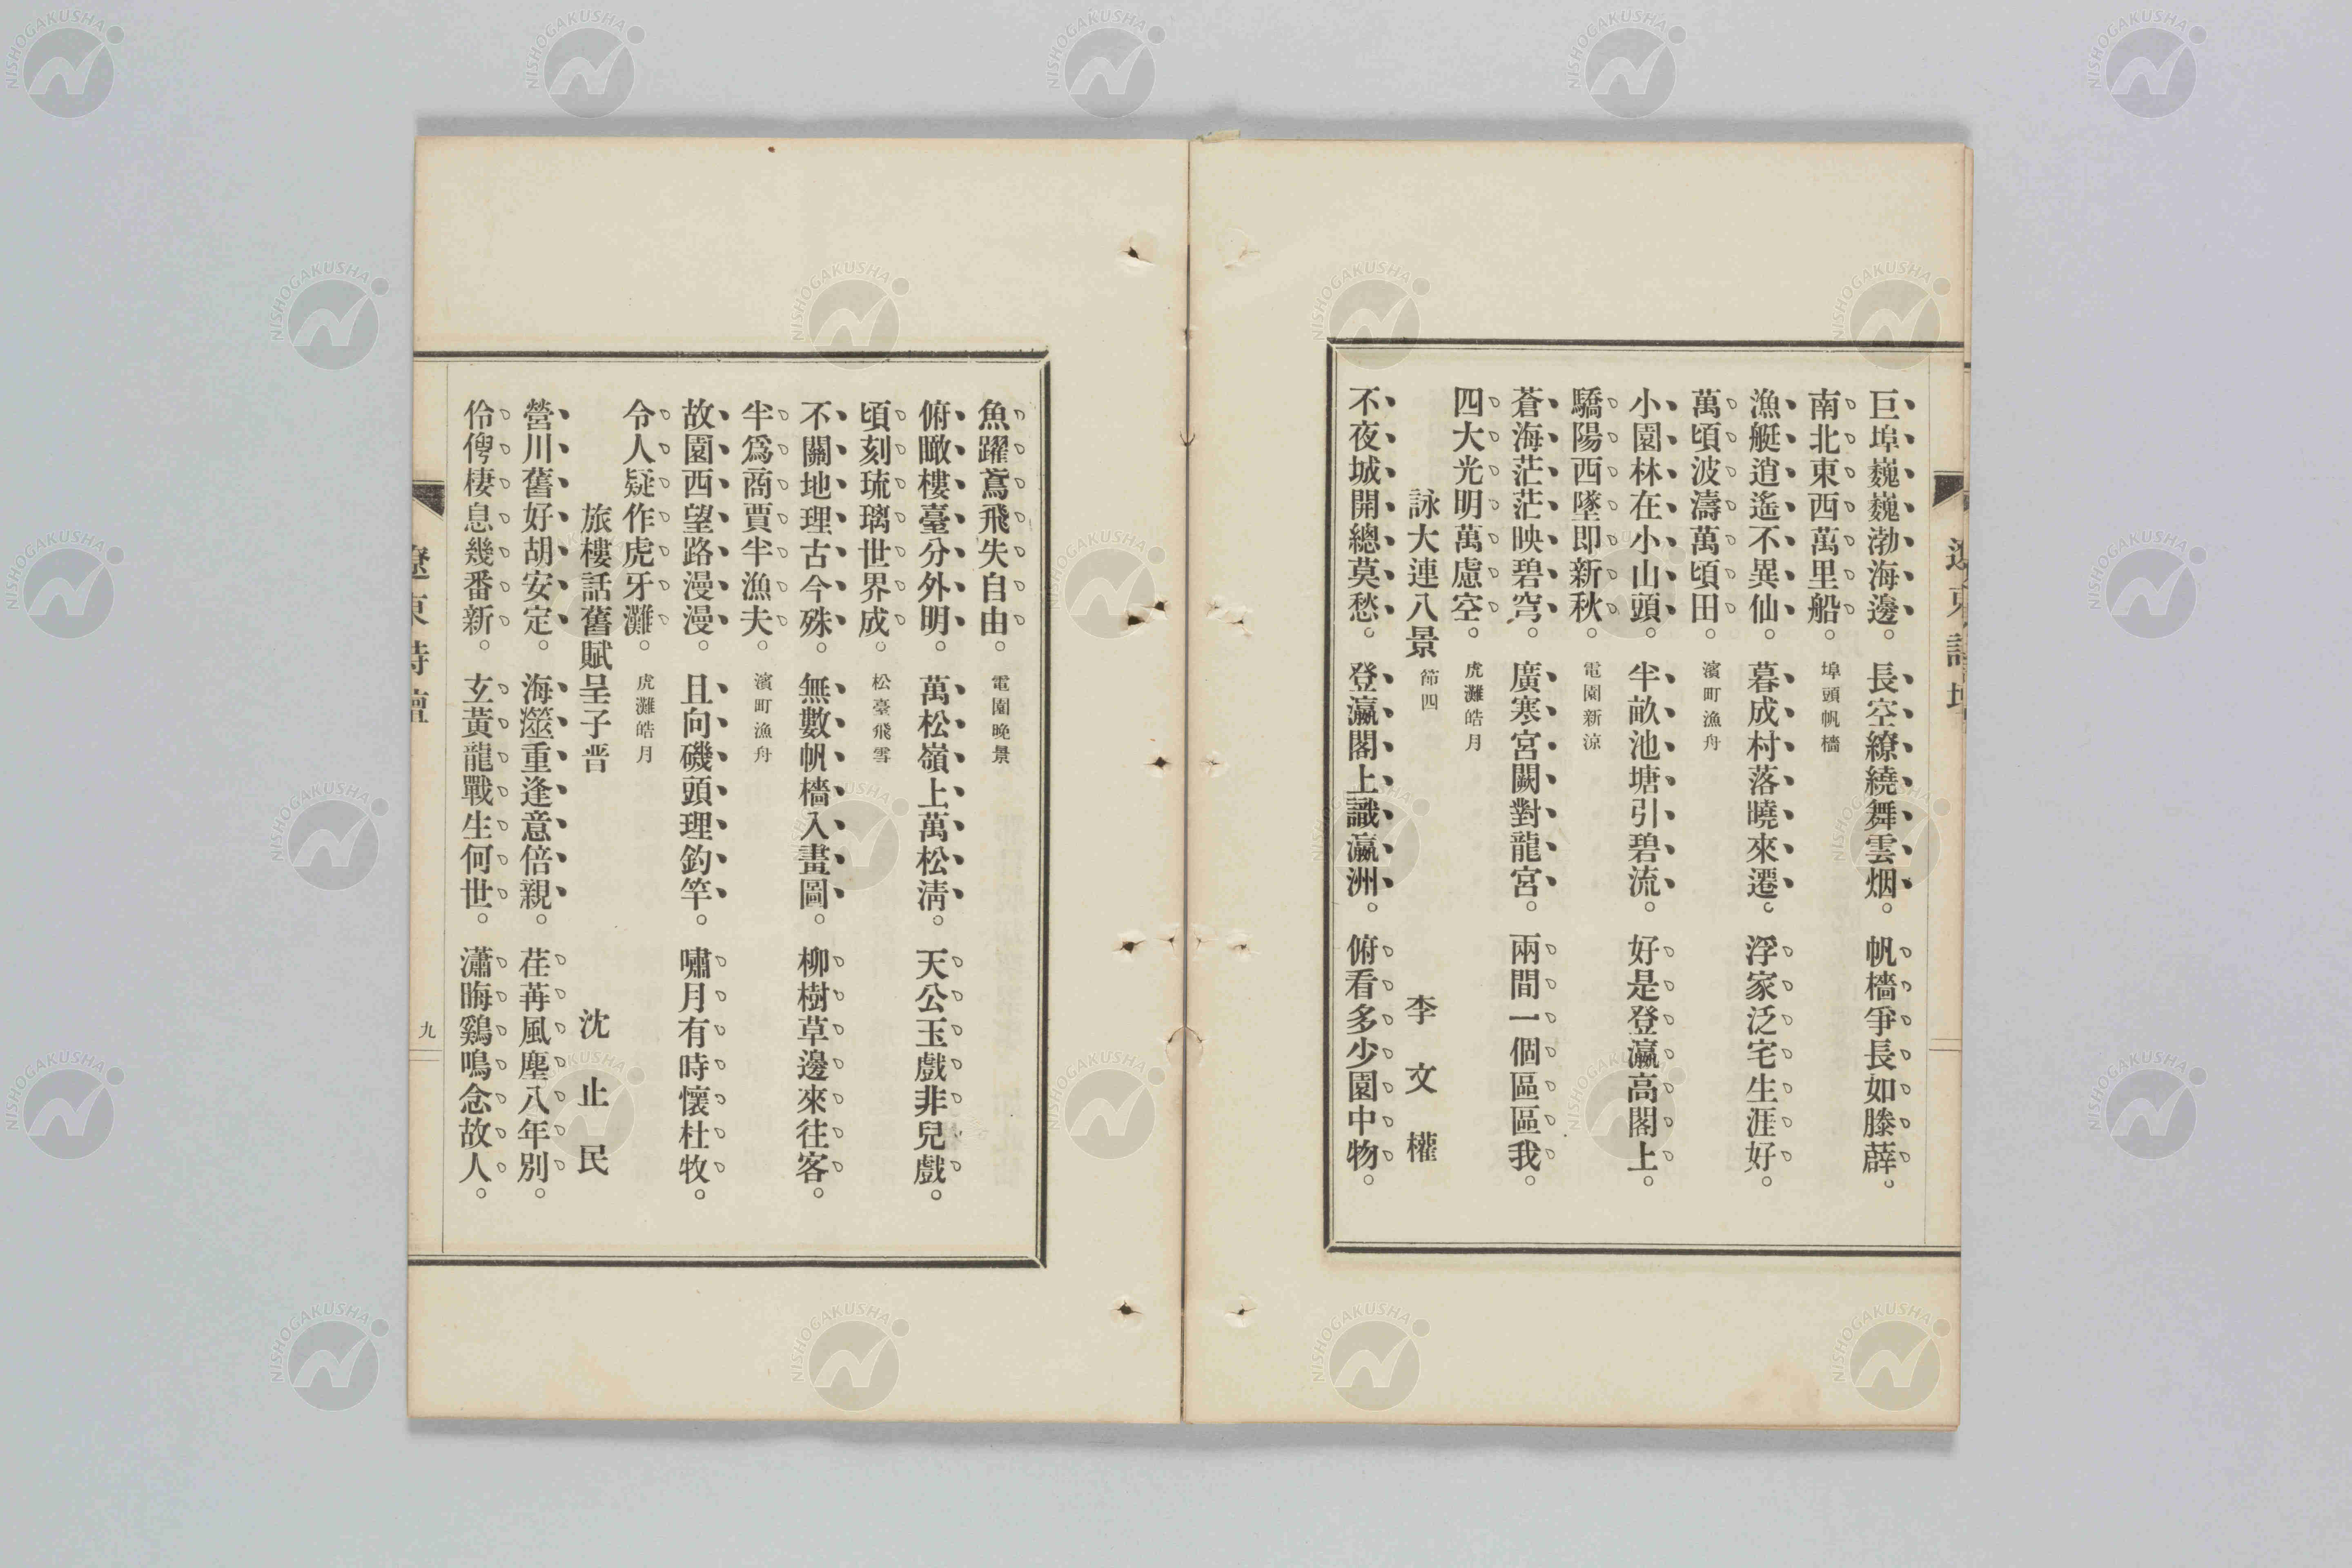 巨埠巍巍渤海邊。長空繚繞舞雲烟。帆檣爭長如滕薛。
南北東西萬里船。埠頭帆檣
漁艇逍遙不異仙。暮成村落曉來遷。浮家泛宅生涯好。
萬頃波濤萬頃田。濱町漁舟
小園林在小山頭。半畝池塘引碧流。好是登瀛高閣上。
驕陽西墜即新秋。電園新涼
蒼海茫茫映碧穹。廣寒宮闕對龍宮。兩間一個區區我。
四大光明萬慮空。虎灘皓月
詠大連八景 節四 李文權
不夜城開總莫愁。登瀛閣上識瀛洲。俯看多少園中物。
魚躍鳶飛失自由。電園晚景
俯瞰樓臺分外明。萬松嶺上萬松淸。天公玉戲非兒戲。
頃刻琉璃世界成。松臺飛雪
不關地理古今殊。無數帆檣入畫圖。柳樹草邊來往客。
半爲商賈半漁夫。濱町漁舟
故園西望路漫漫。且向磯頭理釣竿。嘯月有時懷杜牧。
令人疑作虎牙灘。虎灘皓月
旅樓話舊賦呈子晋 沈止民
營川舊好胡安定。海澨重逢意倍親。荏苒風塵八年別。
伶俜棲息幾番新。玄黃龍戰生何世。瀟晦鷄鳴念故人。
遼東詩壇
九
NISHOGAKUSHA